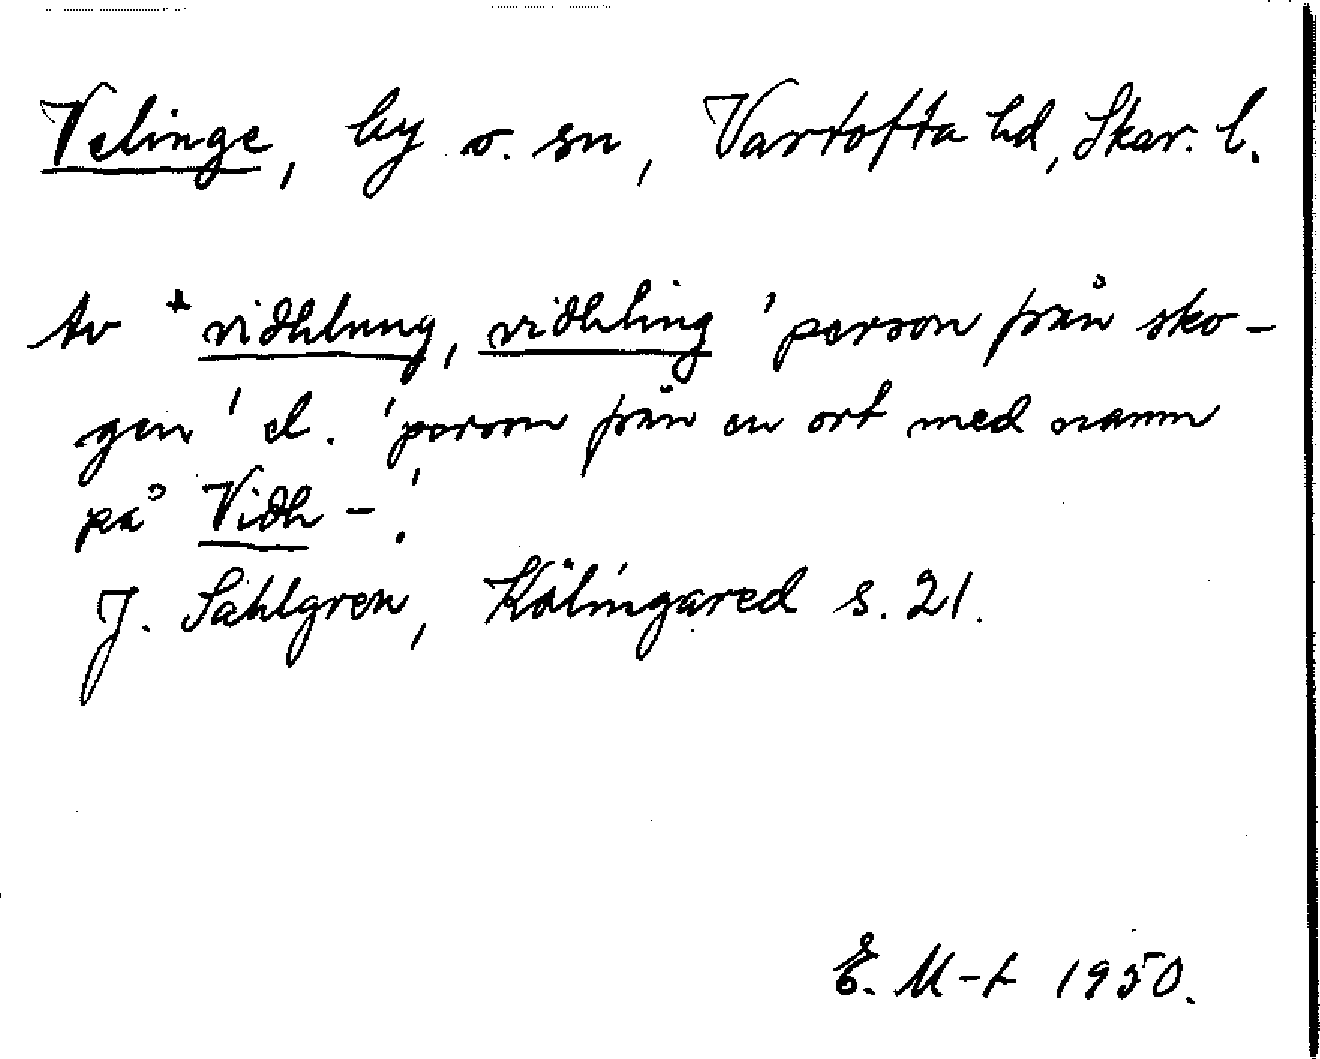 Velinge, by o. sn, Vartofta hd, Skar. l.
Av *vidhlung, vidhling 'person från sko-
gen' el. 'person från en ort med namn
på Vidh-'.
J. Sahlgren, Kölingared s. 21.
E. M-t 1950.